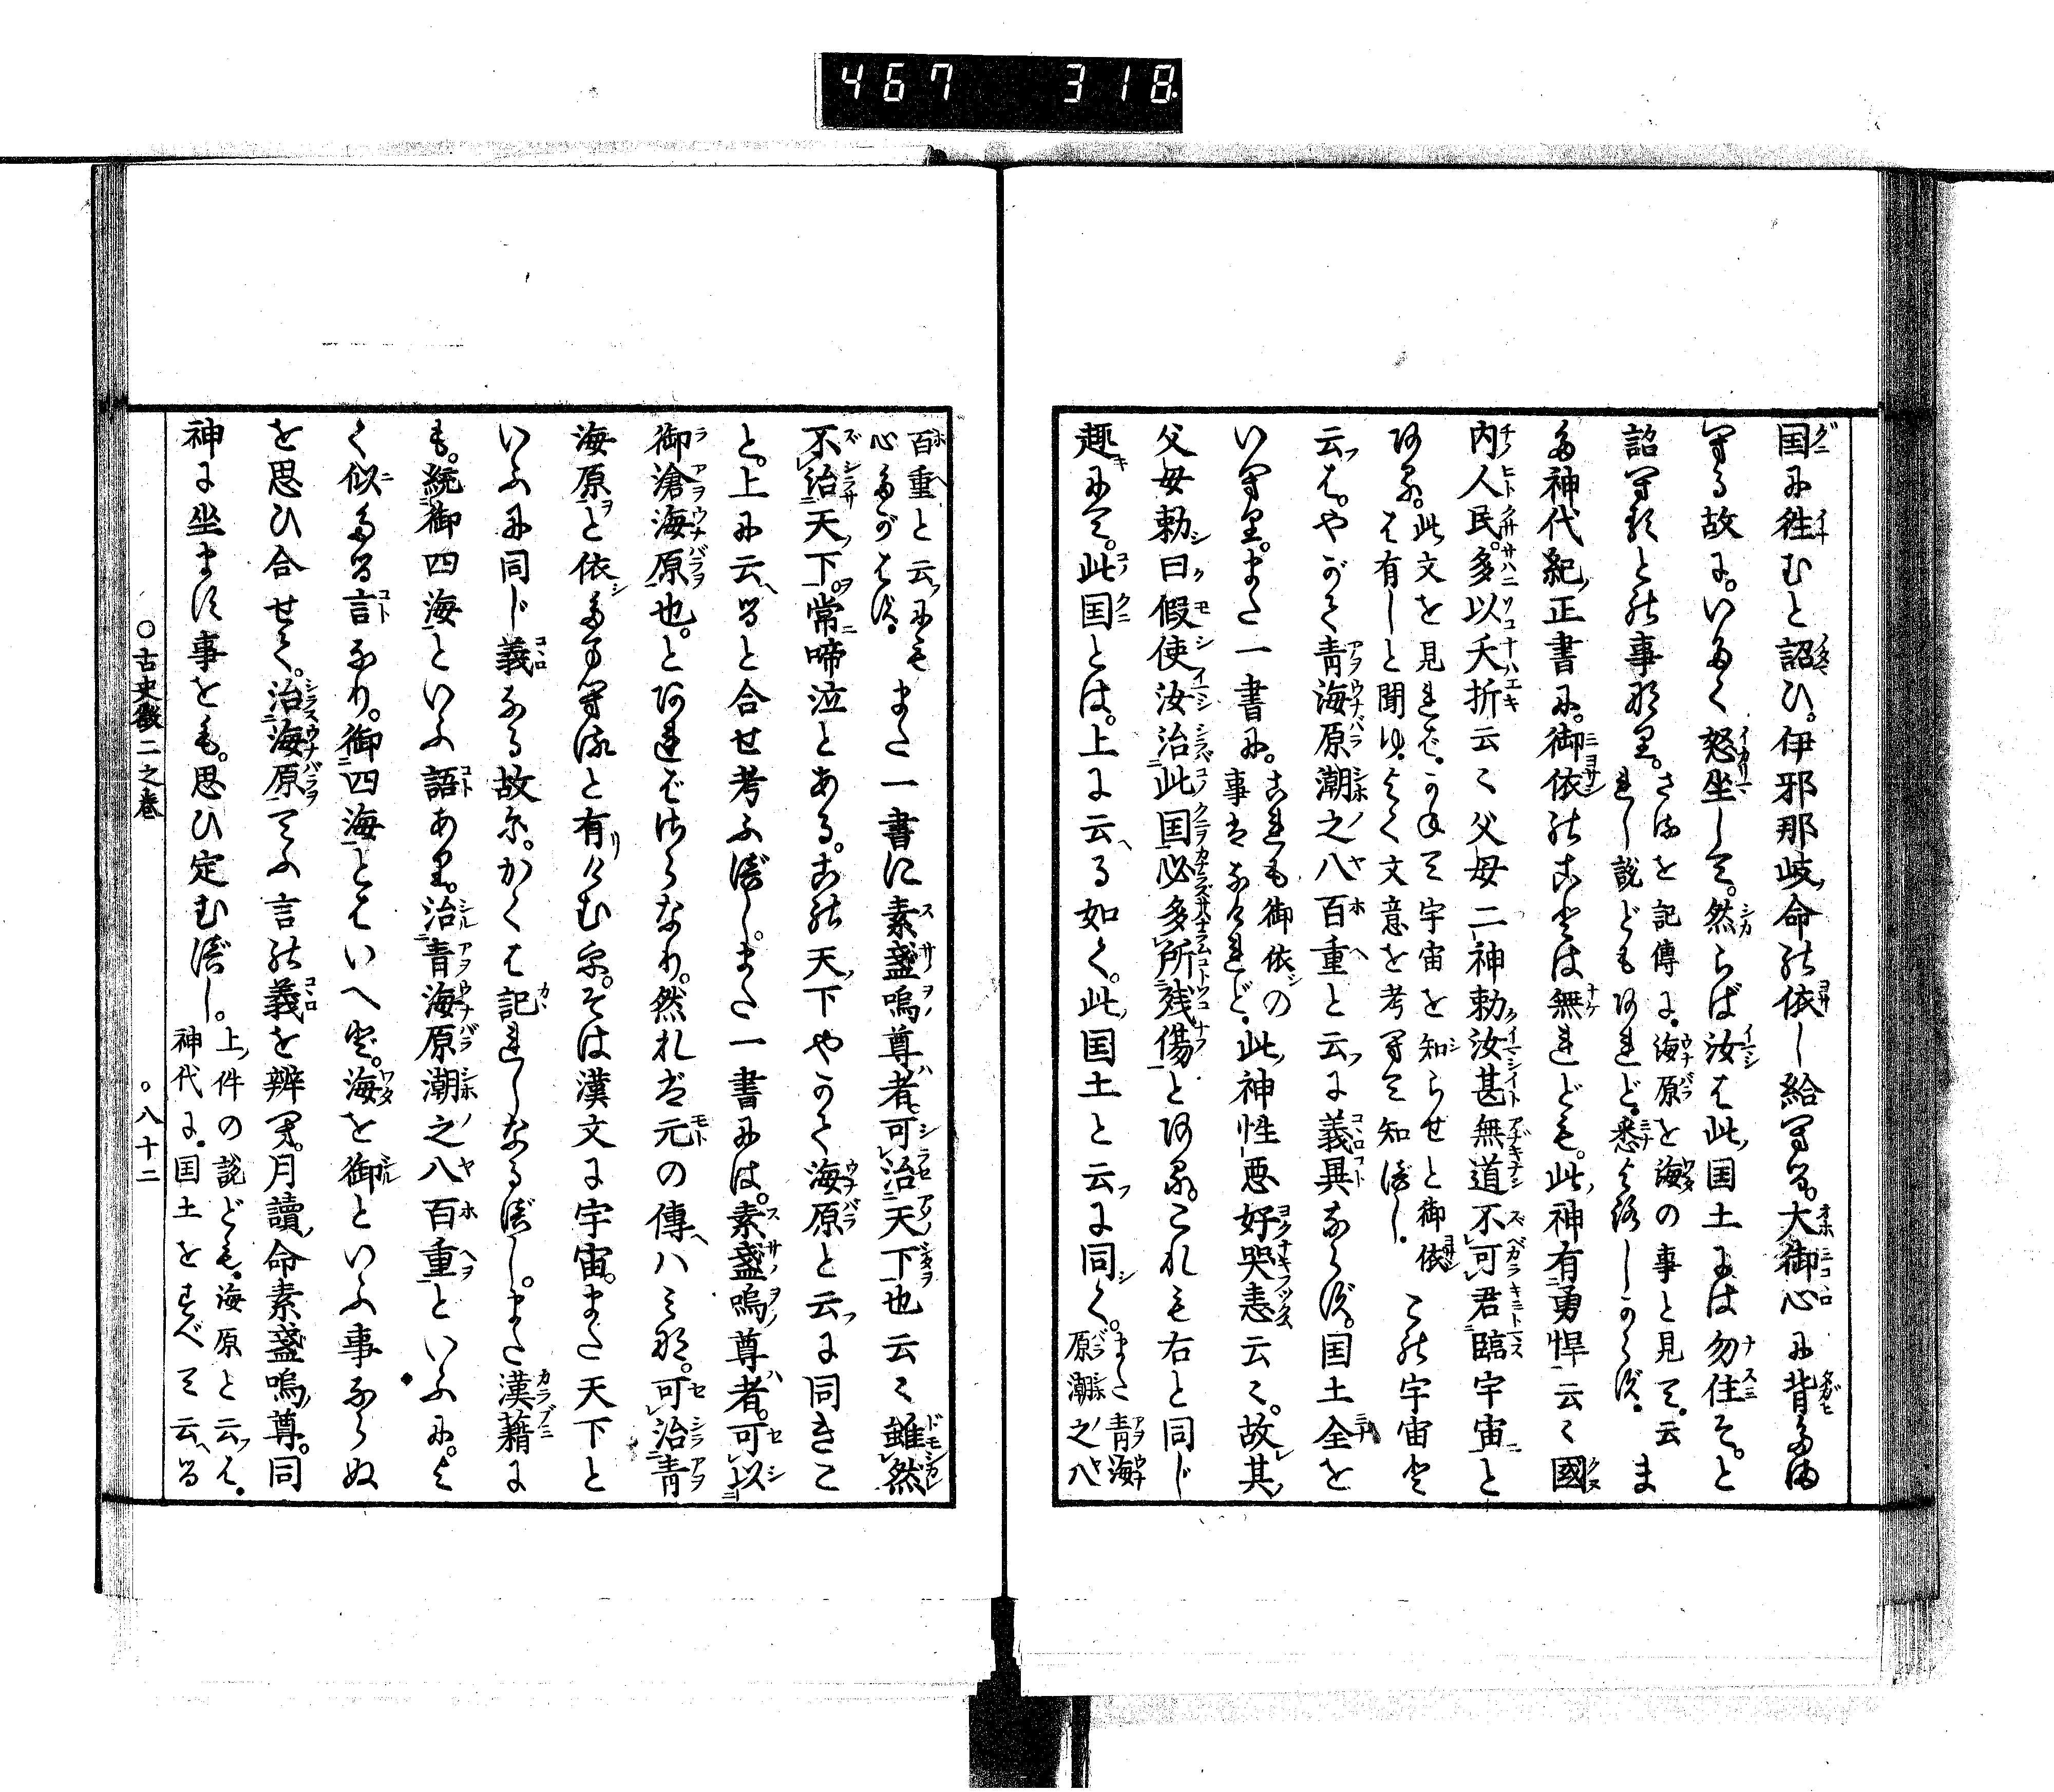 467 318
国に徃むと詔ひ。伊邪那岐命の依し給へる。大御心に背たま
へる故に。いたく怒坐して。然らば汝は此国土には勿住そ。と
詔へるとの事なり。さるを記傳に。海原を海の事と見て。云
れし説どもあれど。悉よろしからず。ま
た神代紀正書に。御依の事は無れども。此神有勇悍云々國
内人民。多以夭折云々父母二神勅汝甚無道不可君臨宇宙と
あり。此文を見れば。かねて宇宙を知らせと御依
は有しと聞ゆ。よく文意を考へて知べし。この宇宙と
云は。やがて青海原潮之八百重と云に義異ならず。国土全を
いへり。また一書に。これも御依の
事はなけれど。此神性悪好哭恚云々。故其
父母勅曰假使汝治此国必多所残傷とあり。これも右と同じ
趣にて。此国とは。上に云る如く。此国土と云に同く。また青海
原潮之八
百重と云にも
心たがはず。また一書に素盞嗚尊者可治天下也云々雖然
不治天下。常啼泣とある。この天下やがて海原と云に同きこ
と。上に云へると合せ考ふべし。また一書には。素盞嗚尊者。可以
御滄海原也。とあればさらなり。然れば元の傳ハみな。可治青
海原と依たまへると有けむを。そは漢文に宇宙。また天下と
いふに同じ義なる故に。かくは記れしなるべし。また漢籍に
も。統御四海といふ語あり。治青海原潮之八百重といふに。よ
く似たる言なり。御四海とはいへど。海を御といふ事ならぬ
を思ひ合せて。治海原てふ言の義を辨へ。月讀命素盞嗚尊。同
神に坐ます事をも。思ひ定むべし。上件の説ども。海原と云は。
神代に。国土をすべて云へる
〇古史徴二之巻
〇八十二